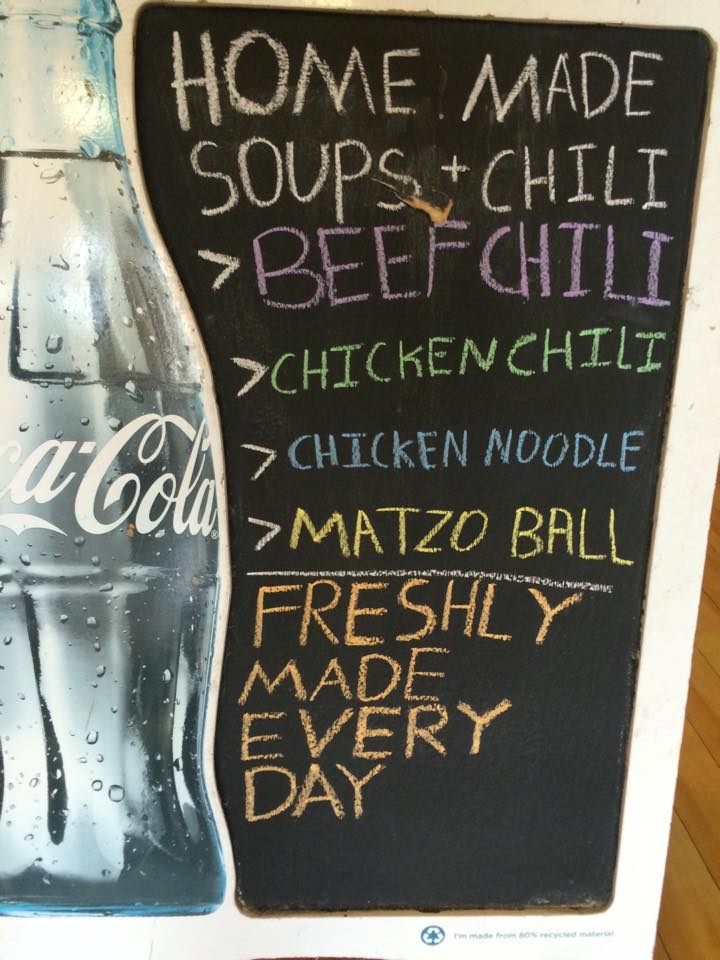 HOME MADE
SOUPS + CHILI
> BEEF CHILI
> CHICKEN CHILI
> CHICKEN NOODLE
> MATZO BALL
FRESHLY
MADE
EVERY
DAY
ca-Cola®
I'm made from 80% recycled material